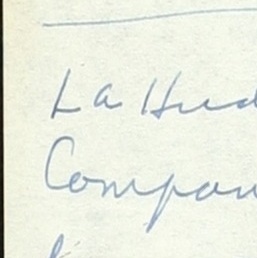 La Hud
Compan